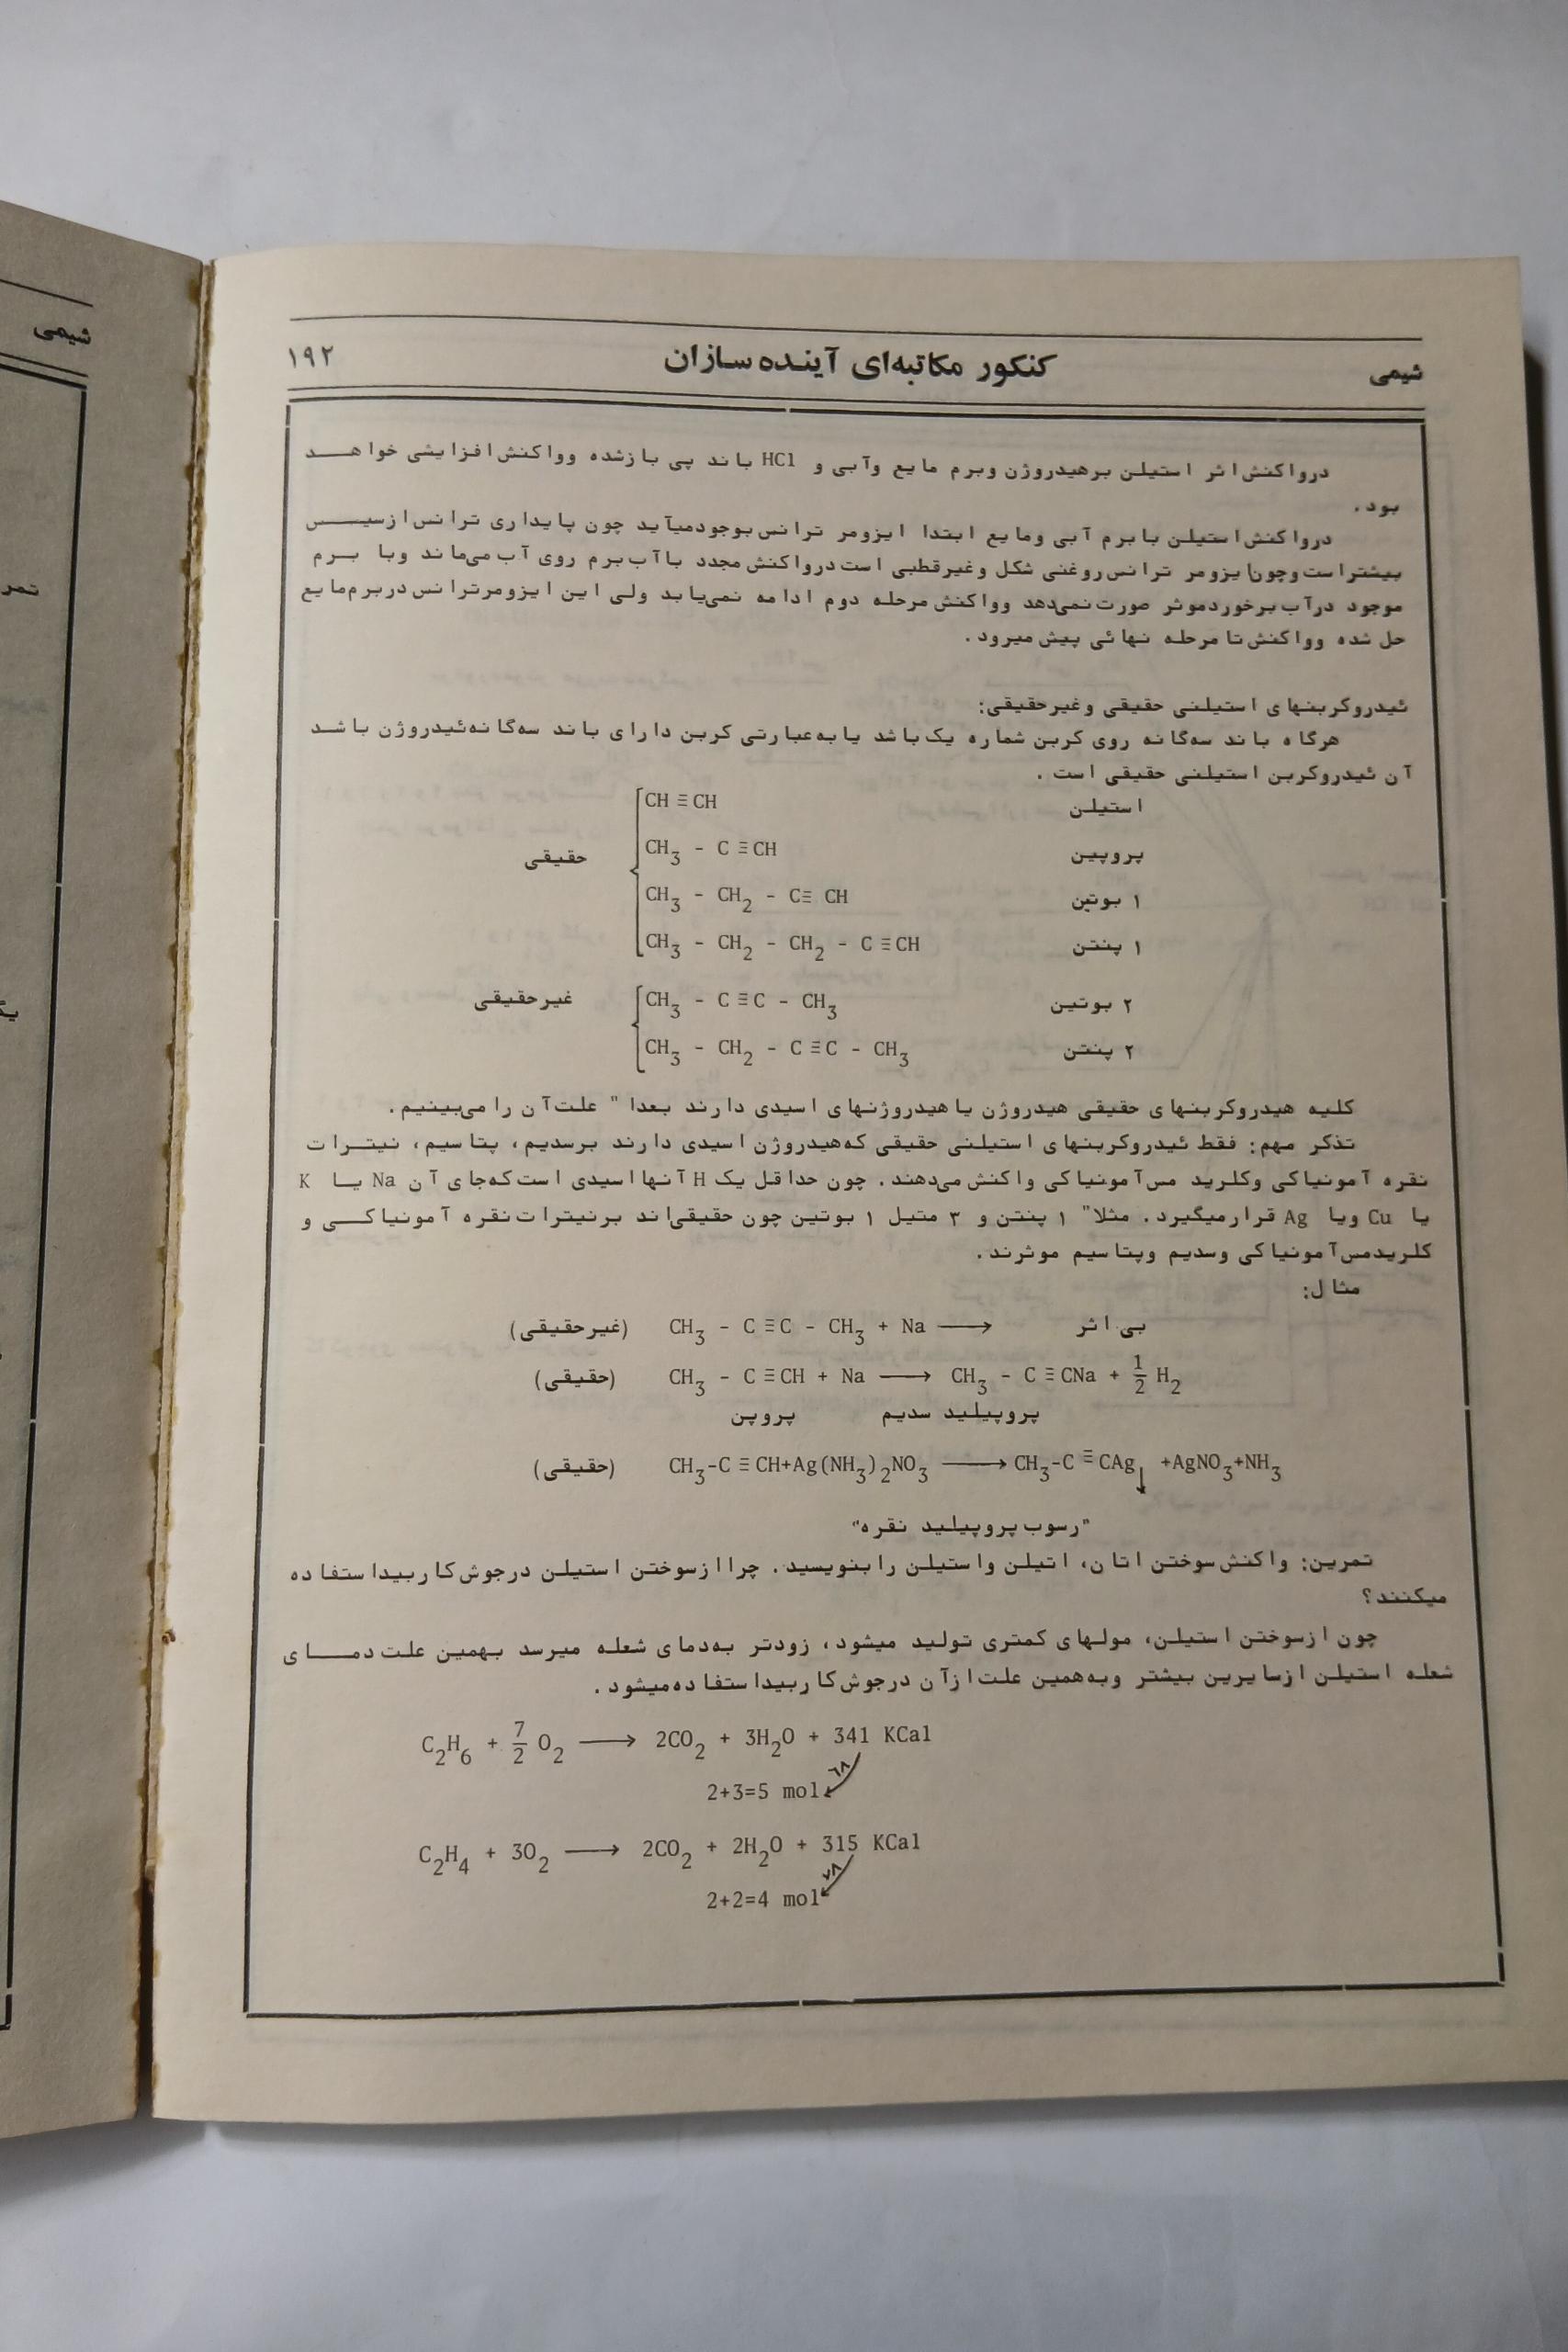 شیمی
تمر
یک
شیمی کنکور مکاتبه‌ای آینده‌سازان ۱۹۲
درواکنش اثر استیلن برهیدروژن وبرم مایع وآبی و HCl باند پی بازشده وواکنش افزایشی خواهد
بود.
درواکنش استیلن بابرم آبی ومایع ابتدا ایزومر ترانس بوجودمیآید چون پایداری ترانس ازسیس
بیشتراست وچون ایزومر ترانس روغنی شکل وغیرقطبی است درواکنش مجدد باآب برم روی آب می‌ماند وبا برم
موجود درآب برخوردموثر صورت نمی‌دهد وواکنش مرحله دوم ادامه نمی‌یابد ولی این ایزومرترانس دربرم‌مایع
حل شده وواکنش تا مرحله نهائی پیش میرود.
ئیدروکربنهای استیلنی حقیقی وغیرحقیقی:
هرگاه باند سه‌گانه روی کربن شماره یک باشد یابه‌عبارتی کربن دارای باند سه‌گانه‌ئیدروژن باشد
آن ئیدروکربن استیلنی حقیقی است.
CH ≡ CH استیلن
CH3 - C ≡ CH پروپین
حقیقی
CH3 - CH2 - C≡ CH ۱ بوتین
CH3 - CH2 - CH2 - C ≡ CH ۱ پنتن
غیرحقیقی CH3 - C ≡ C - CH3 ۲ بوتین
CH3 - CH2 - C ≡ C - CH3 ۲ پنتن
کلیه هیدروکربنهای حقیقی هیدروژن یاهیدروژنهای اسیدی دارند بعدا" علت‌آن را می‌بینیم.
تذکر مهم: فقط ئیدروکربنهای استیلنی حقیقی که‌هیدروژن اسیدی دارند برسدیم، پتاسیم، نیترات
نقره آمونیاکی وکلرید مس‌آمونیاکی واکنش می‌دهند. چون حداقل یک H آنهااسیدی است که‌جای آن Na یا K
یا Cu ویا Ag قرارمیگیرد. مثلا" ۱ پنتن و ۳ متیل ۱ بوتین چون حقیقی‌اند برنیترات نقره آمونیاکی و
کلریدمس‌آمونیاکی وسدیم وپتاسیم موثرند.
مثال:
(غیرحقیقی) CH3 - C ≡ C - CH3 + Na ⟶ بی اثر
(حقیقی) CH3 - C ≡ CH + Na ⟶ CH3 - C ≡ CNa + 1/2 H2
پروپن پروپیلید سدیم
(حقیقی) CH3-C ≡ CH+Ag(NH3)2NO3 ⟶ CH3-C ≡ CAg↓ +AgNO3+NH3
"رسوب پروپیلید نقره"
تمرین: واکنش سوختن اتان، اتیلن واستیلن رابنویسید. چراازسوختن استیلن درجوش‌کاربیداستفاده
میکنند؟
چون ازسوختن استیلن، مولهای کمتری تولید میشود، زودتر به‌دمای شعله میرسد بهمین علت دمای
شعله استیلن ازسایرین بیشتر وبه‌همین علت ازآن درجوش‌کاربیداستفاده‌میشود.
C2H6 + 7/2 O2 ⟶ 2CO2 + 3H2O + 341 KCal
۶۸
2+3=5 mol
C2H4 + 3O2 ⟶ 2CO2 + 2H2O + 315 KCal
۷۸
2+2=4 mol